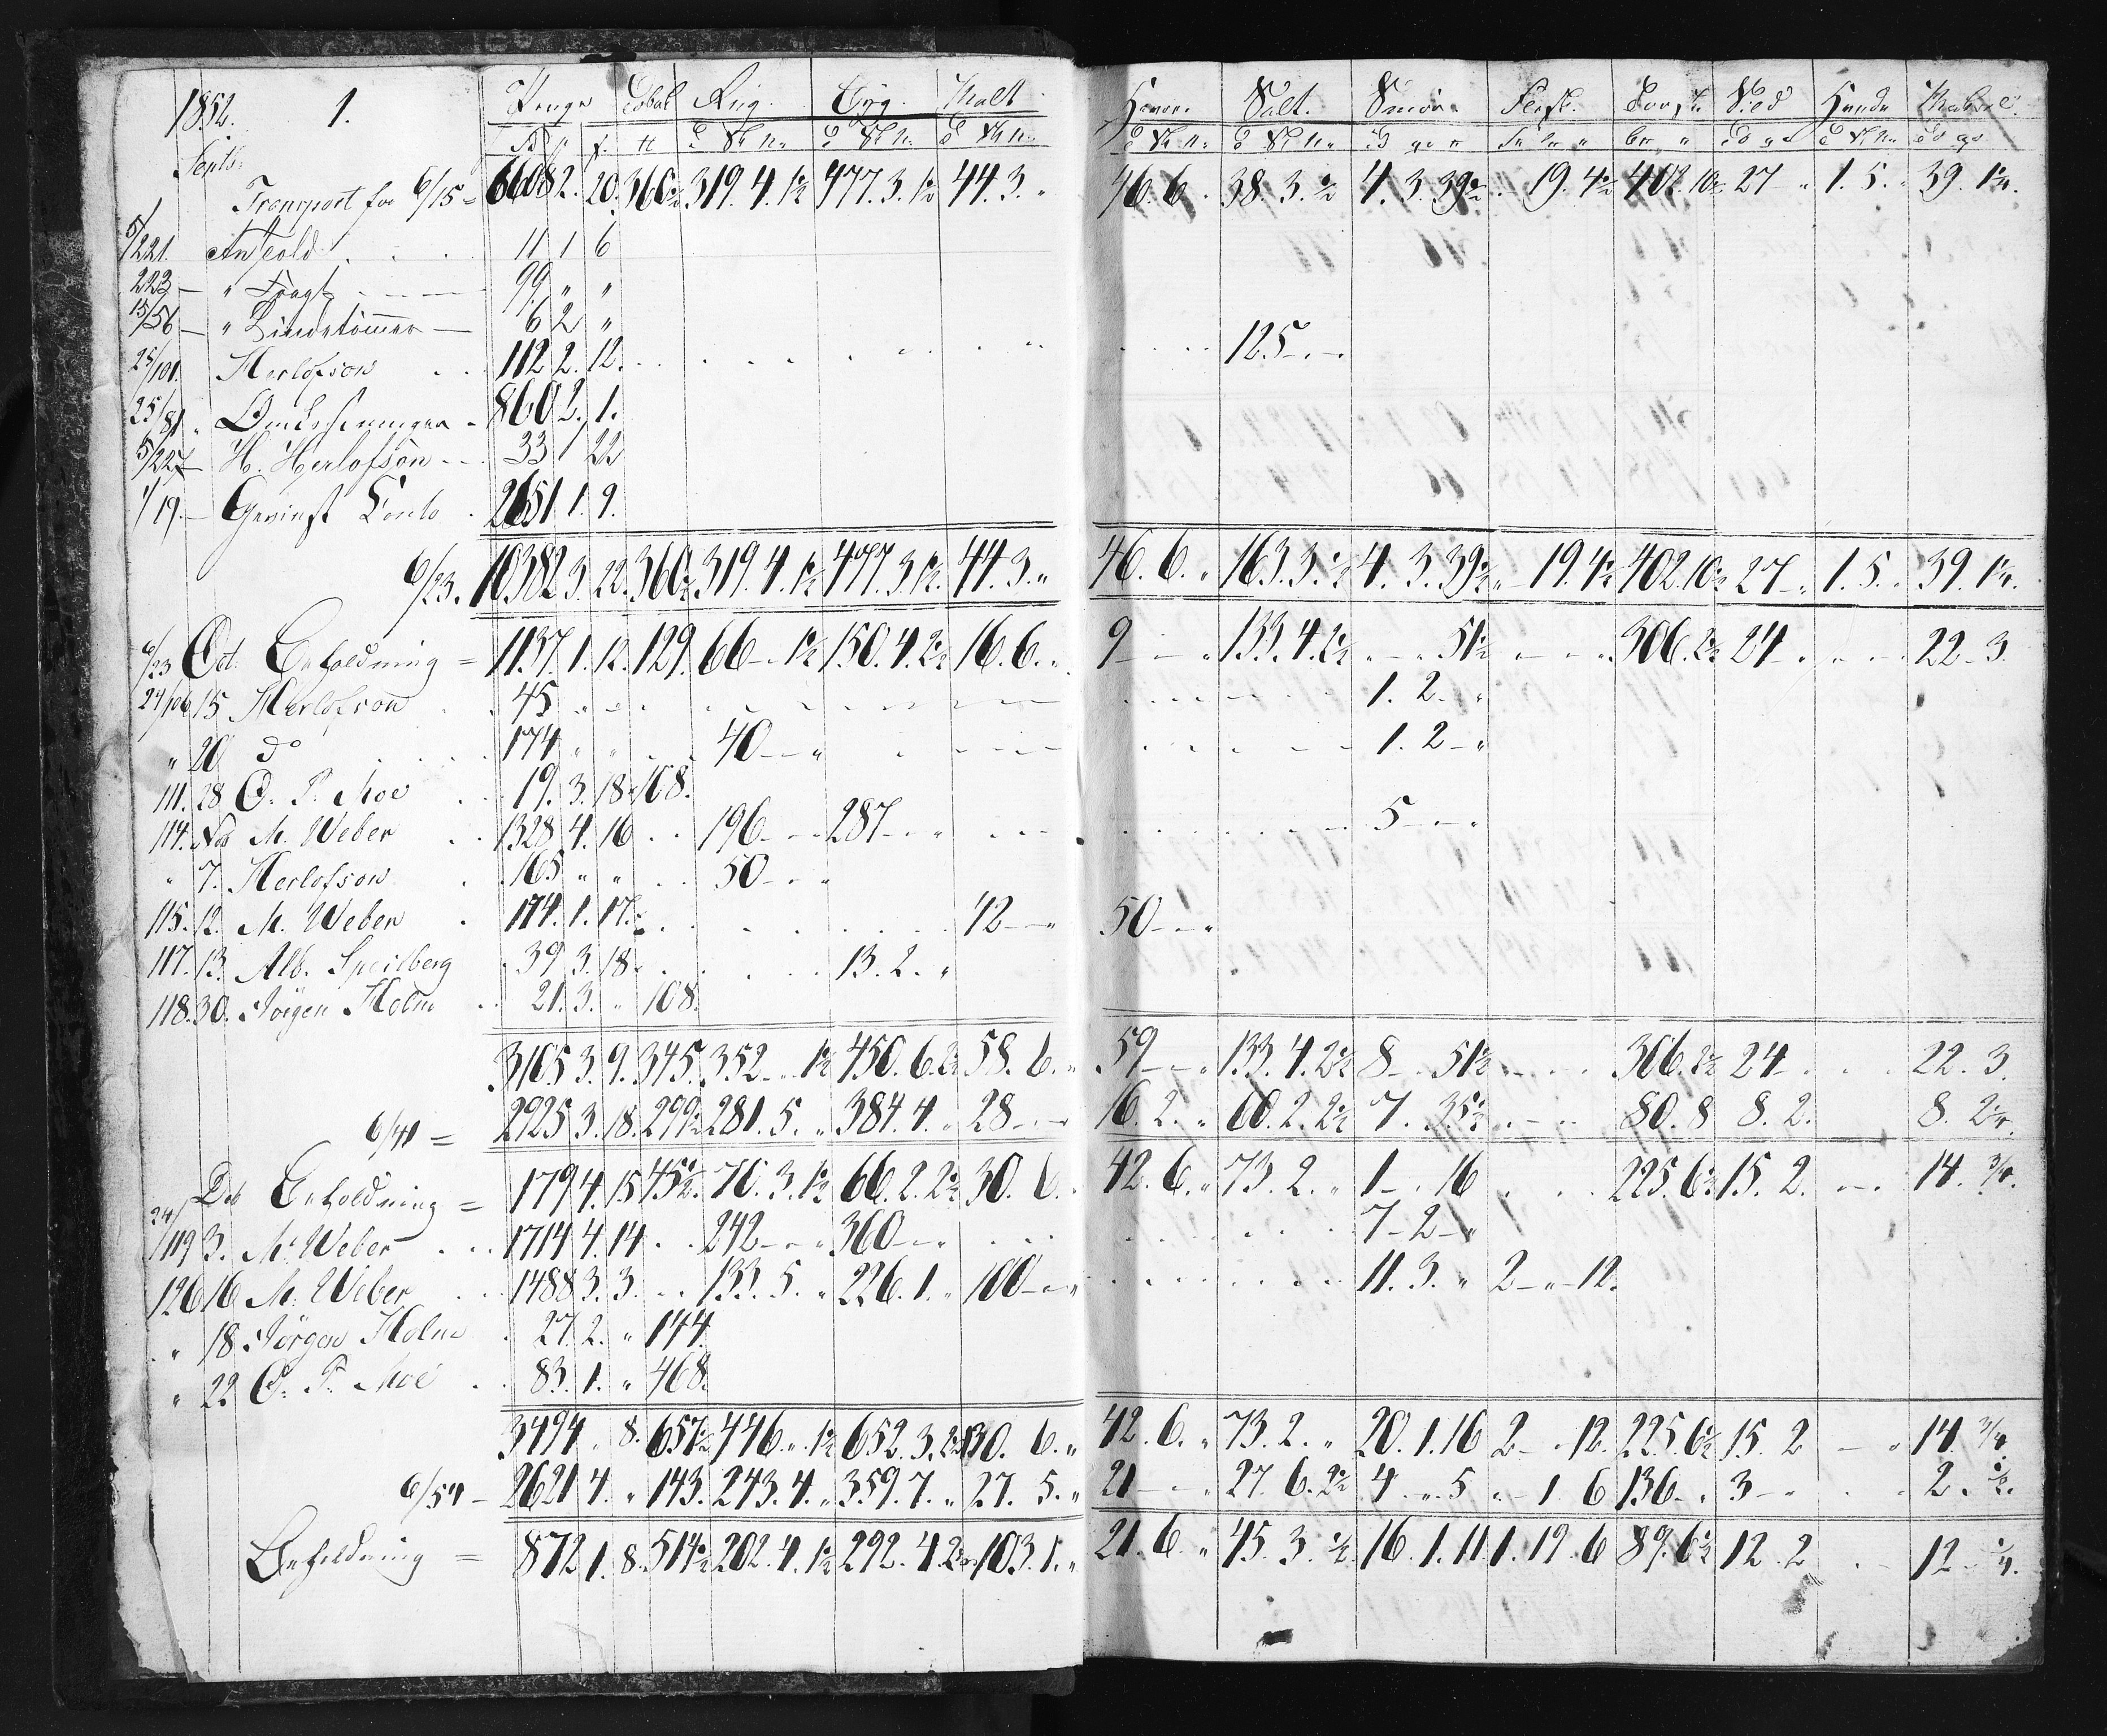 1852. 1. Penge Tobak Rug. Byg. Malt Havre. Salt. Smør. Flesk. Torsk. Sild
Septb:
Transport fra 6/15 = 6608 2. 20. 360½ 319.4.1½ 477.3.1½ 44.3. „ 46.6. „ 38.3.½ 4.3.39½ „ 19.4½ 402.10½ 27 „ 1.5. „ 39.1¼.
5/221. Indsold . . . 11 1 6
223 — „ Fragt — 99 „ „
15/56 — „ Bindtømmer — 6 2 „
24/101. Herlofson . . 112 2. 12. 125 - „ -
25/81 „ Omkostninger . 860 2. 1.
5/227 — H. Herlofson - - 33 1 22
1/19. — Gevinst Conto . 2651 1. 9.
6/23. 10382 3. 22. 360½ 319.4.1½ 477.3.1½. 44.3. „ 46.6. „ 163.3.½ 4.3.39½ „ 19.4½ 402.10½ 27 - „ 1.5. „ 39.1¼.
6/23 Oct. Beholdning = 1137. 1. 12. 129. 66 - „ 1½ 150.4.2½ 16.6. „ 9 - - „ 133.4.2½ „ - „ 51½ 306.2½ 24 - „ 22 - 3.
24/106 15 Herlofson . . 45 „ - - 1. 2 - „
„ 20 do . . . 174 „ „ 40 - - „ 1. 2 - „
111. 28 O. P. Moe . . 19. 3. 18. 108.
114. Nov M. Weber . . 1328 4. 16 . . 196 - - 287 - - „ 5 - „ -
„ 7. Herlofson . . 165 „ „ . . 50 - - „
115. 12. M. Weber . 174. 1. 17. 42 - - „ 50 - - „
117. 13. Alb. Speilberg . 39 3. 18. 13. 2. „
118. 30. Jörgen Holm . . 21. 3. „ 108.
3105 3. 9. 345. 352 - „ 1½ 450.6.2½ 58. 6. „ 59 - - „ 133.4.2½ 8 - „ 51½ 306.2½ 24 - 22. 3.
6/41 = 2925 3. 18. 299½ 281. 5. „ 384. 4. „ 28 - - 16. 2. „ 60.2.2½ 7. „ 35½ 80. 8 8. 2. 8. 2¼.
Deb Beholdning = 179 4. 15 45½. 70. 3. 1½ 66. 2. 2½ 30. 6. „ 42. 6. „ 73. 2. „ 1 - „ 16 225. 6½ 15. 2. 14. ¾.
24/119 3. M. Weber . . . 1714 4. 14 . . 242 - - „ 360 - - „ 7 - 2 - „
126 16 M. Weber . . 1488 3. 3. . . 133. 5. „ 226. 1. „ 100 - - „ 11. 3. „ 2 - „ - 12.
„ 18 Jörgen Holm . 27 2. „ 144.
„ 22 O. P. Moe . . 83. 1. „ 468.
3494 „ 8. 657½ 446. „ 1½ 652. 3. 2½ 130. 6. „ 42. 6. „ 73. 2. „ 20. 1. 16 2 - „ 12. 225. 6½ 15. 2 - „ 14. ¾.
6/54 - 2621 4. „ 143. 243. 4. „ 359. 7. „ 27. 5. „ 21 - - „ 27. 6. 2½ 4. „ 5 „ - 1. 6 136 - „ 3 - „ 2. ½.
Beholdning = 872 1. 8. 514½ 202. 4. 1½ 292. 4. 2½ 103. 1. „ 21. 6. „ 45. 3. ½ 16. 1. 11 1. 19. 6 89. 6½ 12. 2 12 - ¼.